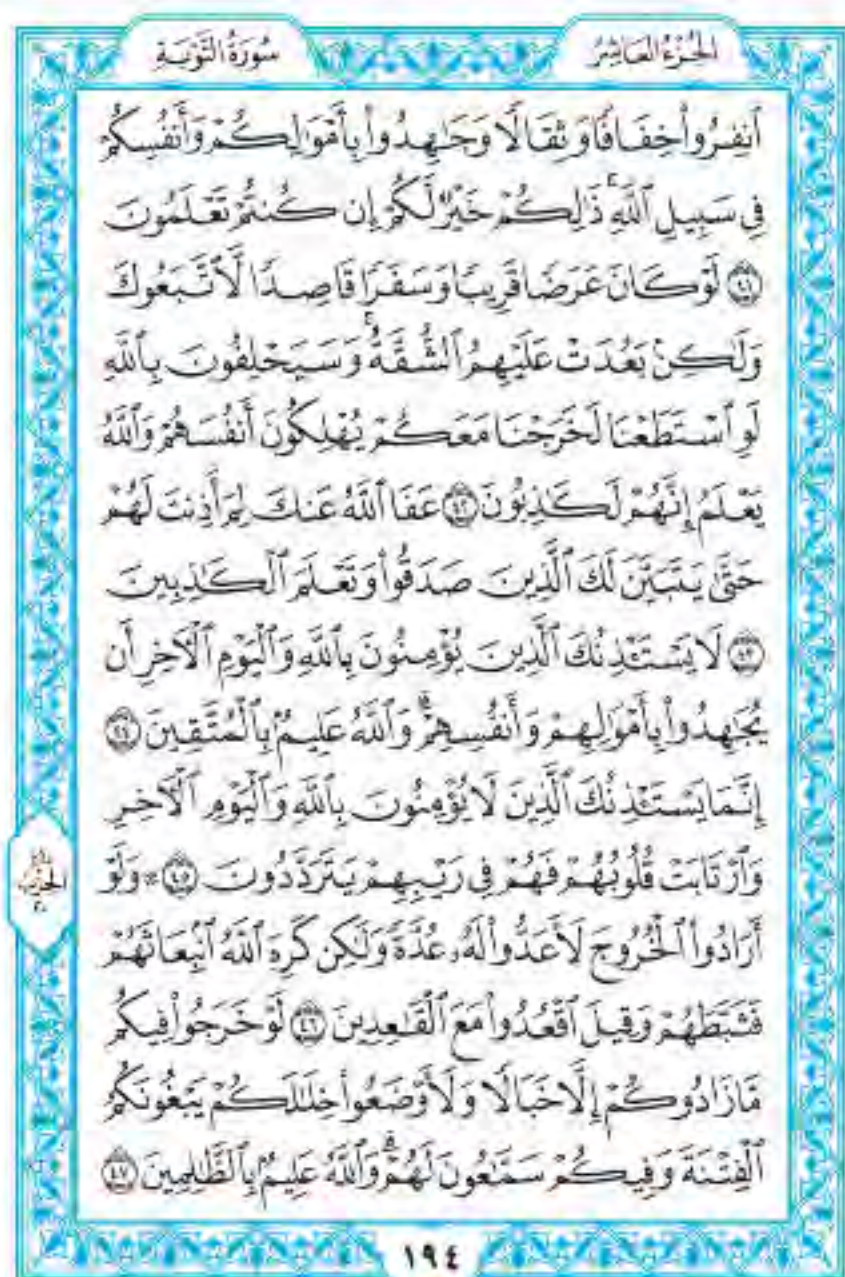 الجُزْءُ العَاشِرُ
سُورَةُ التَّوْبَةِ
ٱنفِرُوا۟ خِفَافًا وَثِقَالًا وَجَـٰهِدُوا۟ بِأَمْوَٰلِكُمْ وَأَنفُسِكُمْ
فِى سَبِيلِ ٱللَّهِ ۚ ذَٰلِكُمْ خَيْرٌ لَّكُمْ إِن كُنتُمْ تَعْلَمُونَ
٤١ لَوْ كَانَ عَرَضًا قَرِيبًا وَسَفَرًا قَاصِدًا لَّٱتَّبَعُوكَ
وَلَـٰكِنۢ بَعُدَتْ عَلَيْهِمُ ٱلشُّقَّةُ ۚ وَسَيَحْلِفُونَ بِٱللَّهِ
لَوِ ٱسْتَطَعْنَا لَخَرَجْنَا مَعَكُمْ يُهْلِكُونَ أَنفُسَهُمْ وَٱللَّهُ
يَعْلَمُ إِنَّهُمْ لَكَـٰذِبُونَ ٤٢ عَفَا ٱللَّهُ عَنكَ لِمَ أَذِنتَ لَهُمْ
حَتَّىٰ يَتَبَيَّنَ لَكَ ٱلَّذِينَ صَدَقُوا۟ وَتَعْلَمَ ٱلْكَـٰذِبِينَ
٤٣ لَا يَسْتَـْٔذِنُكَ ٱلَّذِينَ يُؤْمِنُونَ بِٱللَّهِ وَٱلْيَوْمِ ٱلْـَٔاخِرِ أَن
يُجَـٰهِدُوا۟ بِأَمْوَٰلِهِمْ وَأَنفُسِهِمْ ۗ وَٱللَّهُ عَلِيمٌۢ بِٱلْمُتَّقِينَ ٤٤
إِنَّمَا يَسْتَـْٔذِنُكَ ٱلَّذِينَ لَا يُؤْمِنُونَ بِٱللَّهِ وَٱلْيَوْمِ ٱلْـَٔاخِرِ
وَٱرْتَابَتْ قُلُوبُهُمْ فَهُمْ فِى رَيْبِهِمْ يَتَرَدَّدُونَ ٤٥ ۞ وَلَوْ
أَرَادُوا۟ ٱلْخُرُوجَ لَأَعَدُّوا۟ لَهُۥ عُدَّةً وَلَـٰكِن كَرِهَ ٱللَّهُ ٱنۢبِعَاثَهُمْ
فَثَبَّطَهُمْ وَقِيلَ ٱقْعُدُوا۟ مَعَ ٱلْقَـٰعِدِينَ ٤٦ لَوْ خَرَجُوا۟ فِيكُم
مَّا زَادُوكُمْ إِلَّا خَبَالًا وَلَأَوْضَعُوا۟ خِلَـٰلَكُمْ يَبْغُونَكُمُ
ٱلْفِتْنَةَ وَفِيكُمْ سَمَّـٰعُونَ لَهُمْ ۗ وَٱللَّهُ عَلِيمٌۢ بِٱلظَّـٰلِمِينَ ٤٧
الحِزْب
٢٠
١٩٤